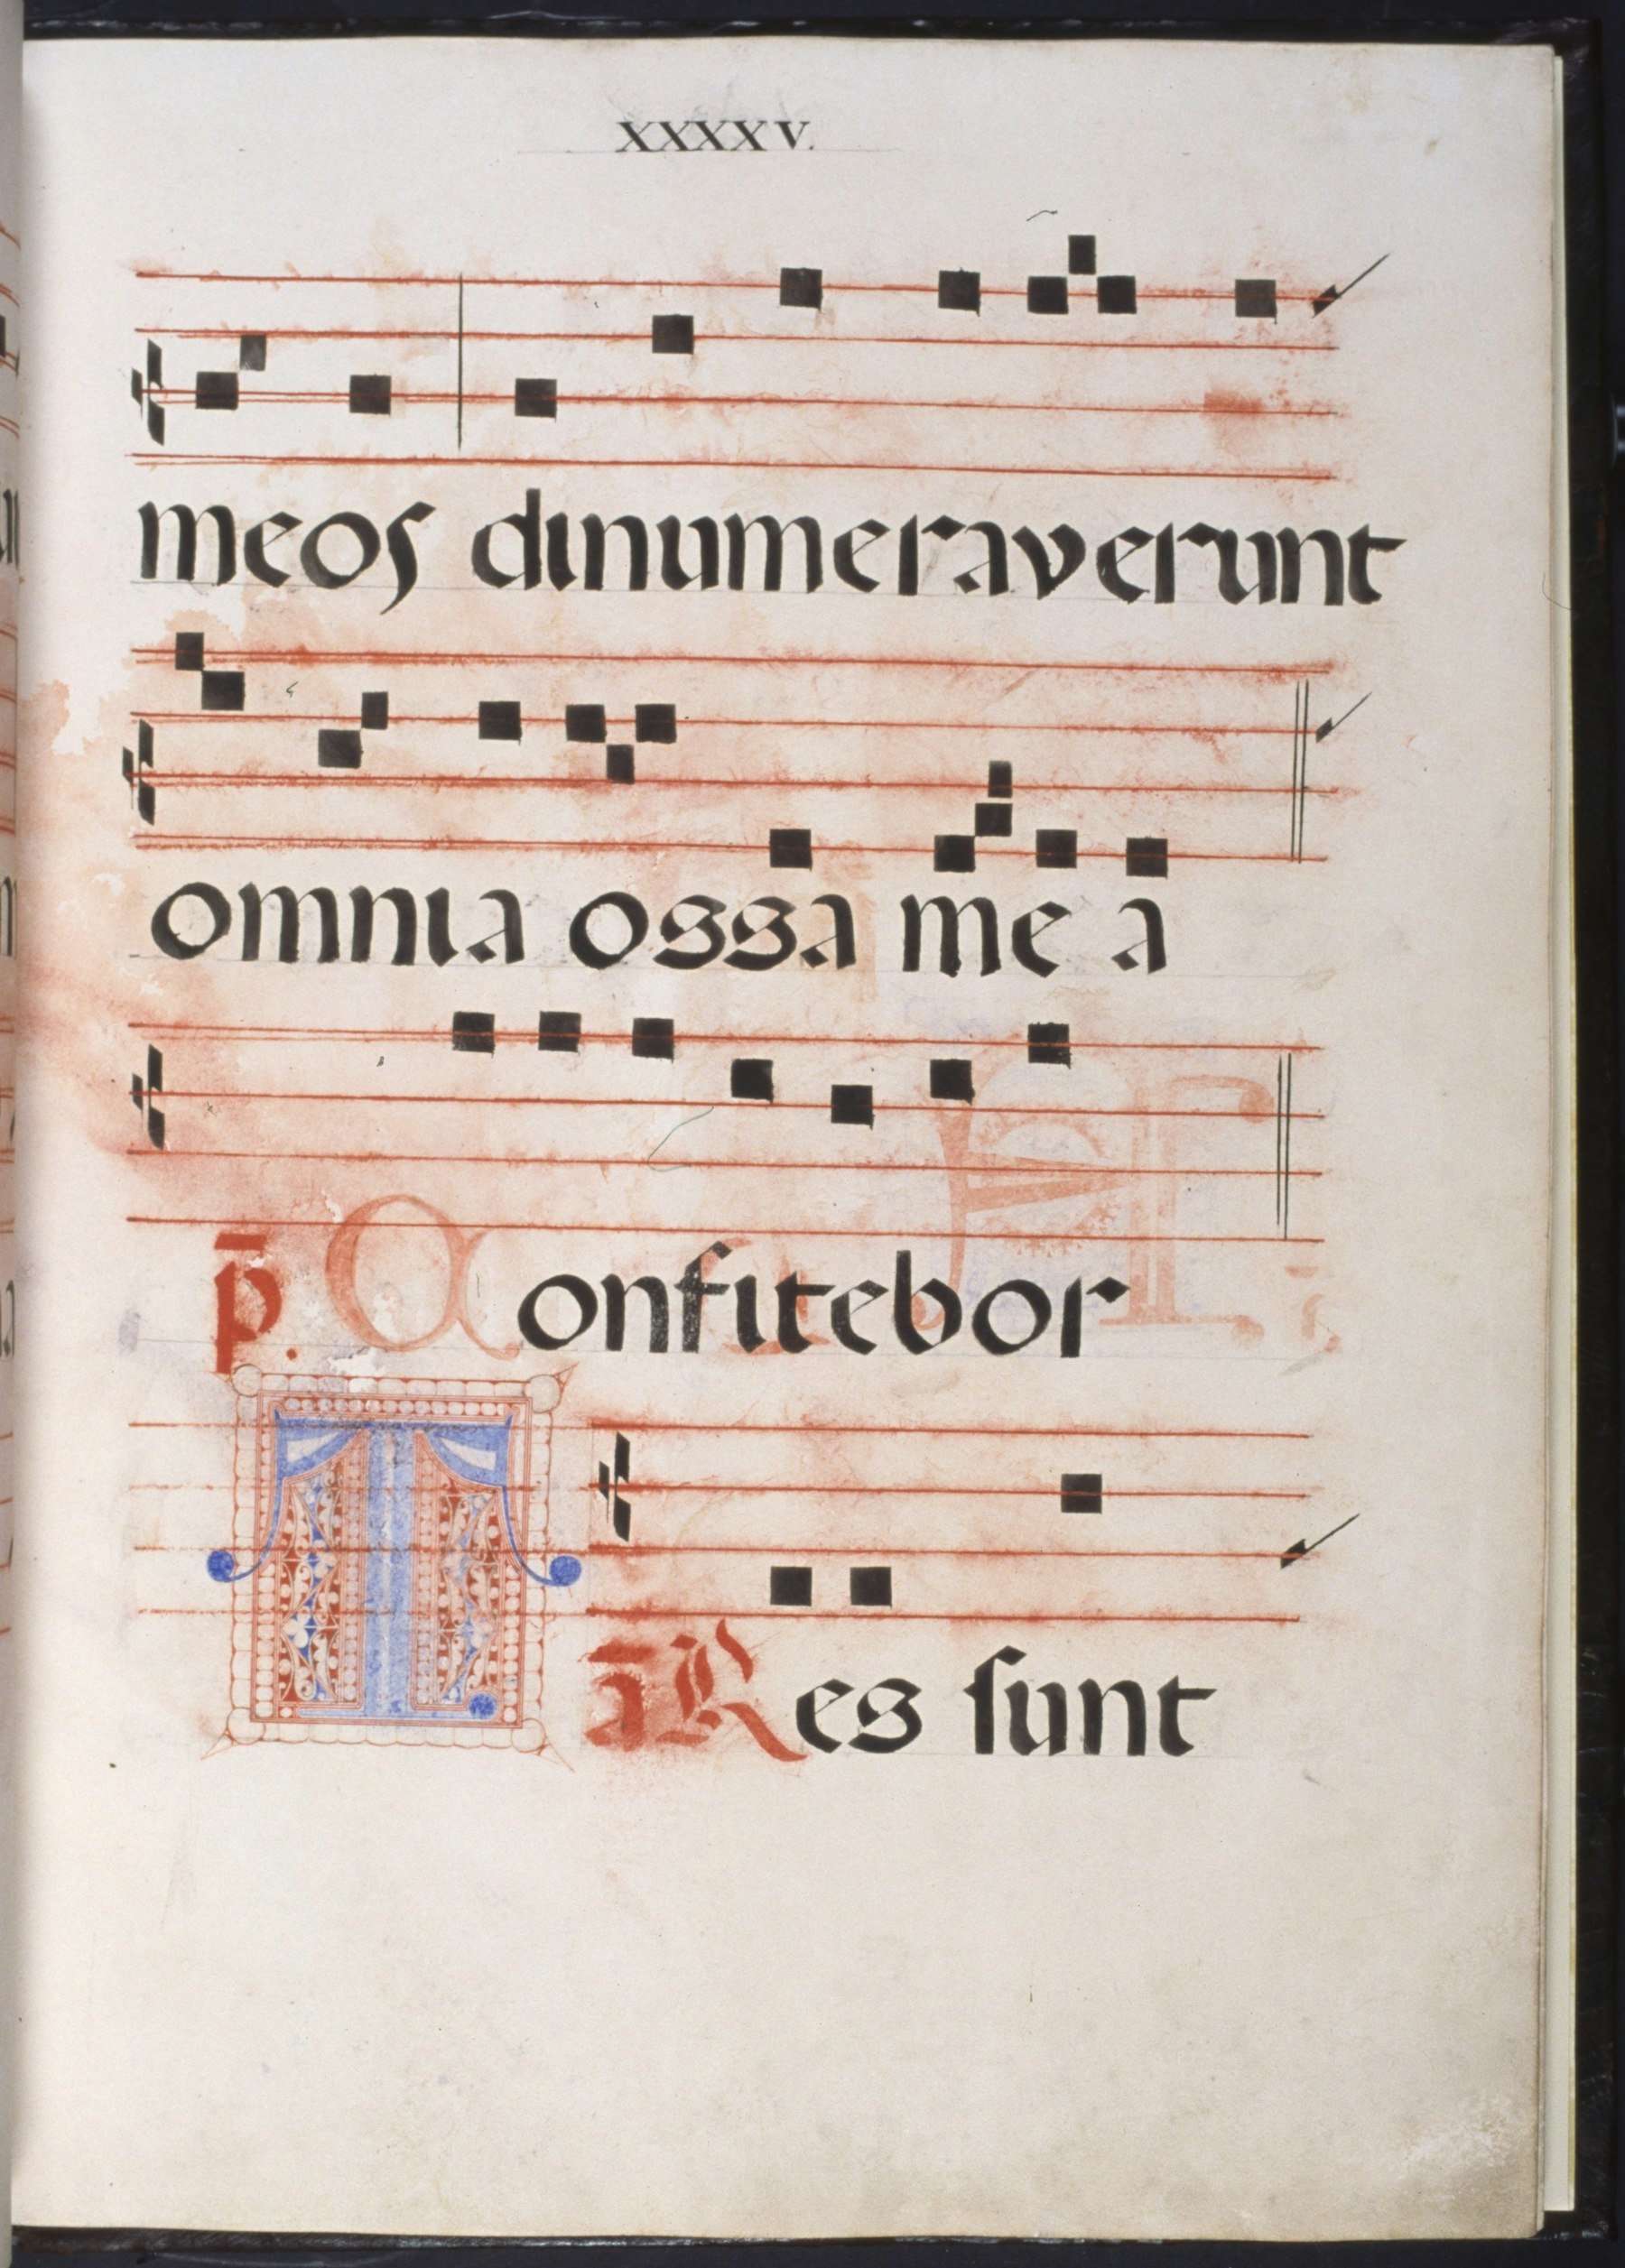 XXXXV.
meos dinumeraverunt
omnia ossa me a
p̄. onfitebor
T ā Res sunt